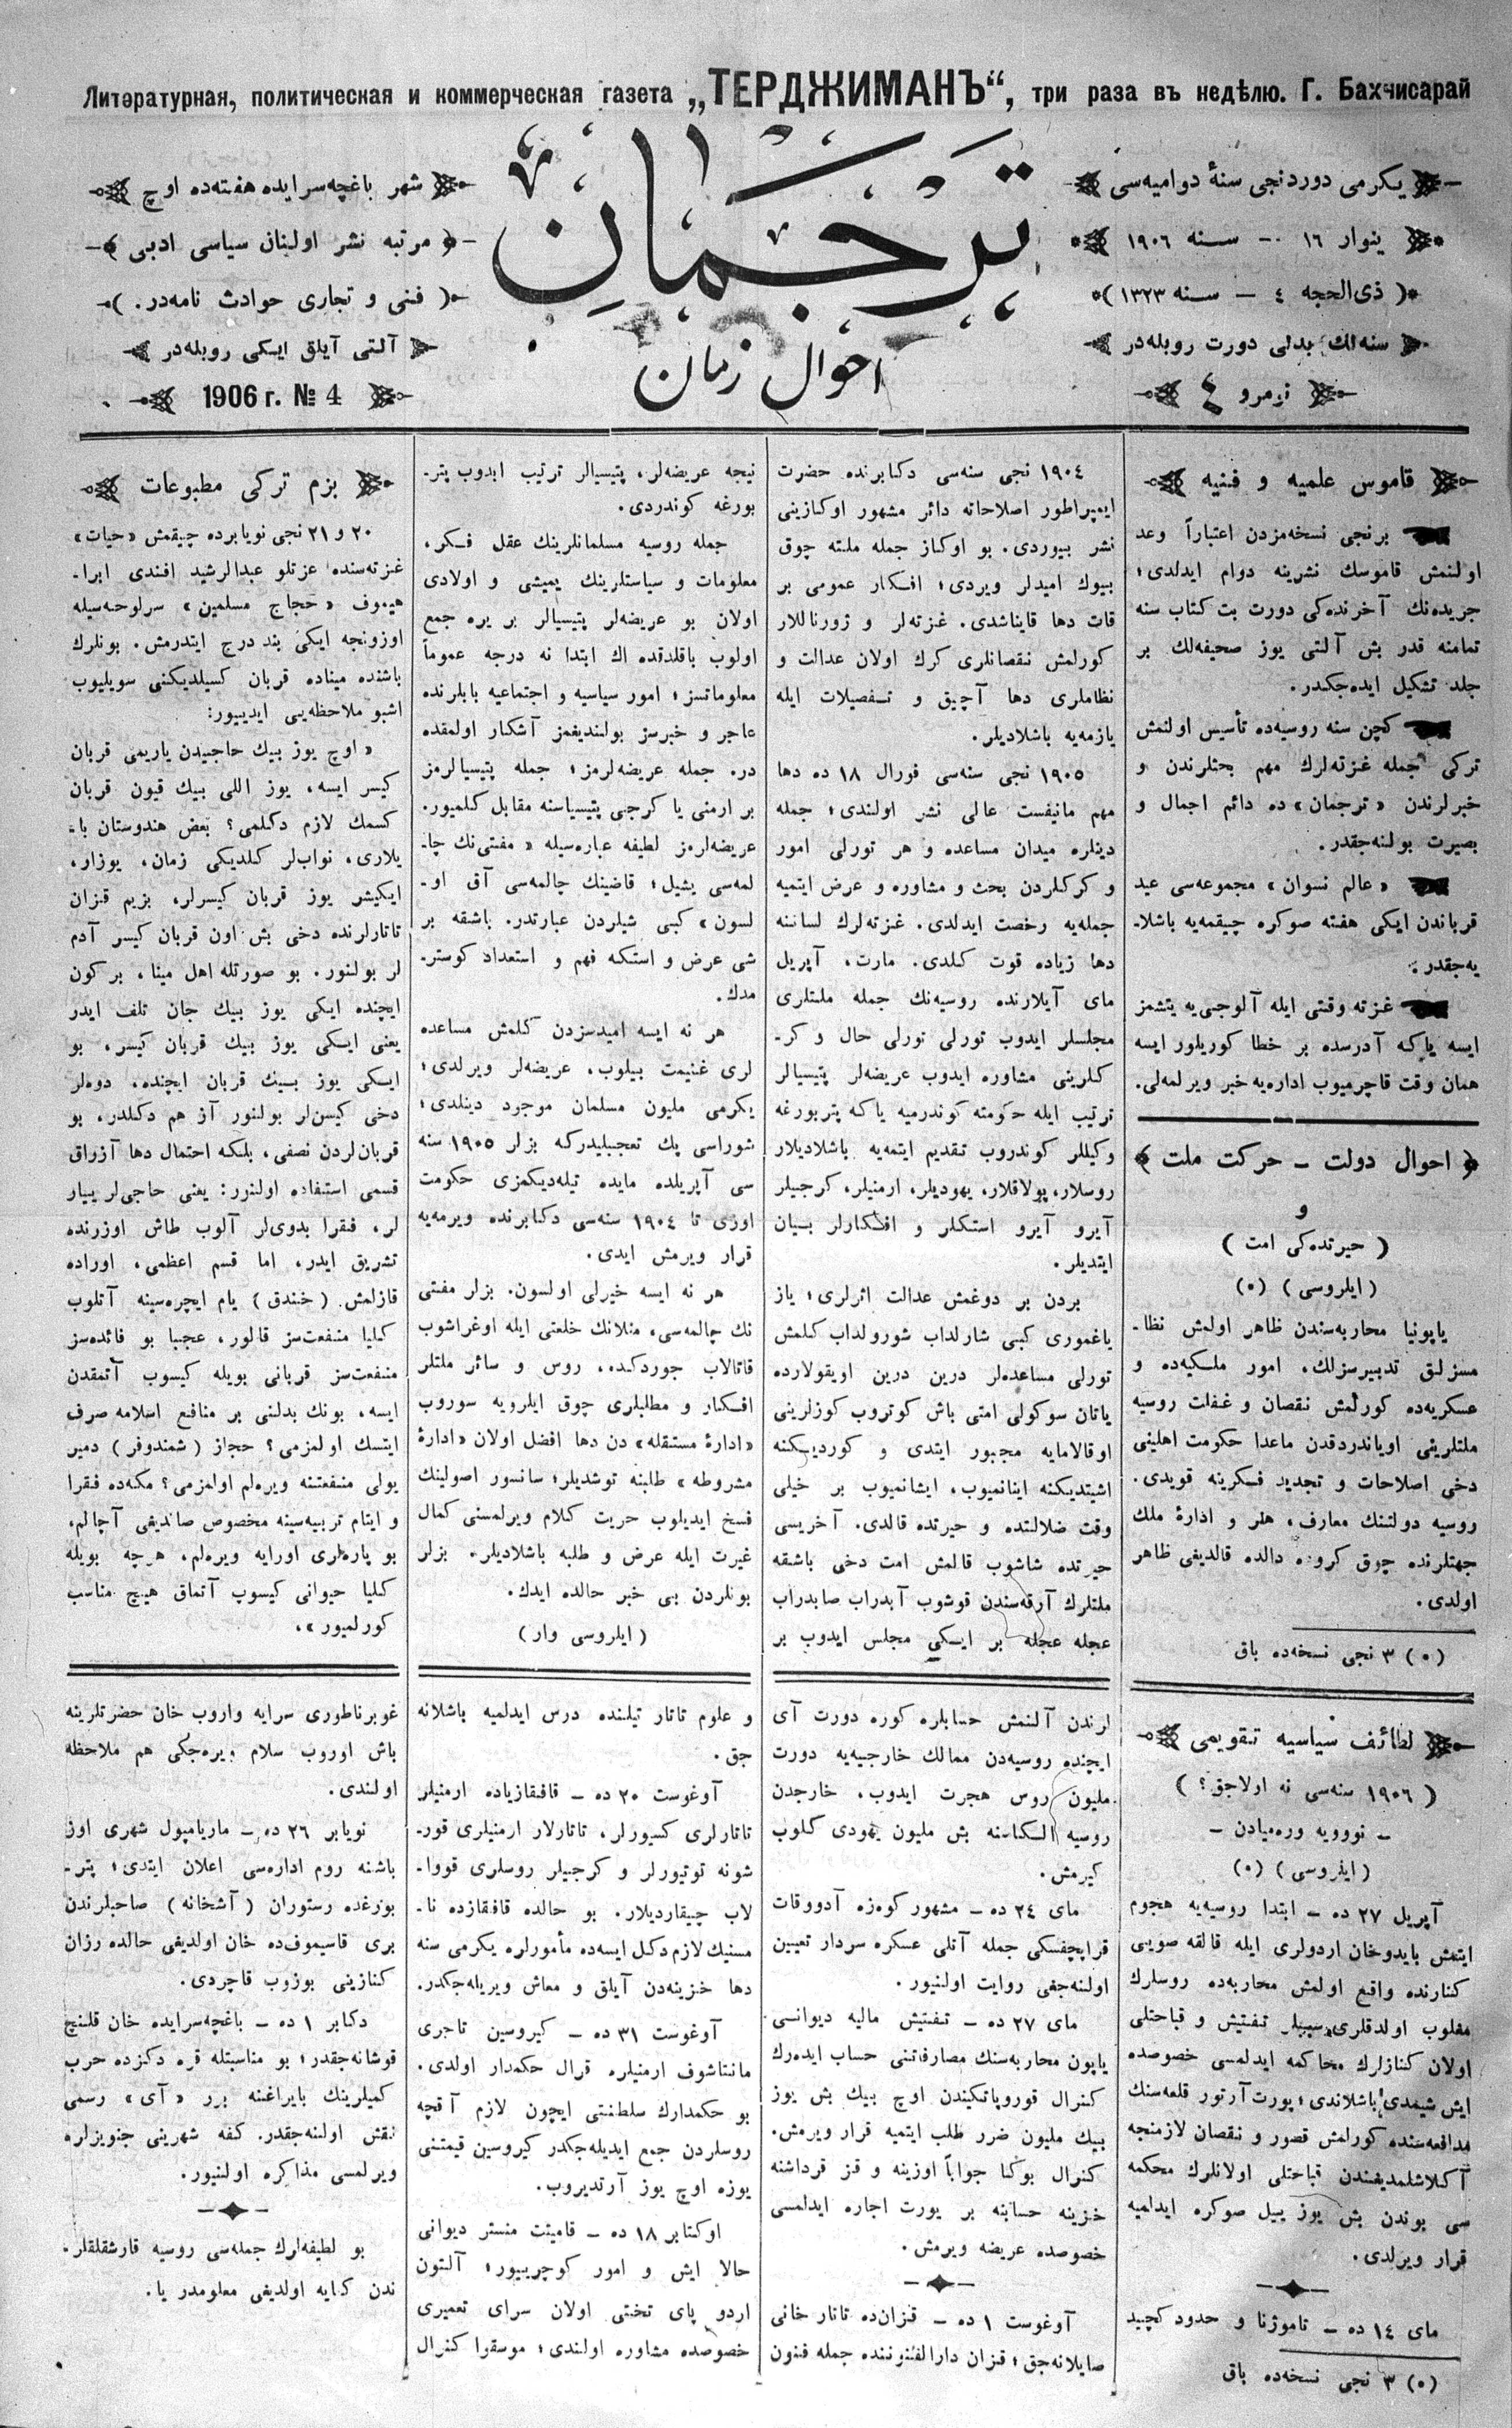 Литературная, политическая и коммерческая газета „ТЕРДЖИМАНЪ“, три раза въ недѣлю. Г. Бахчисарай
يكرمى دوردنجى سنۀ دواميه‌سى
ينوار ١٦ — سـنه ١٩٠٦
( ذى‌الحجه ٤ — سـنه ١٣٢٣ )
سنه‌لك بدلى دورت روبله‌در
نومرو ٤
ترجمان
احوال زمان
شهر باغچه‌سرايده هفته‌ده اوچ
مرتبه نشر اولنان سياسى ادبى
( فنى و تجارى حوادث نامه‌در . )
آلتى آيلق ايكى روبله‌در
1906 г. № 4
قاموس علميه و فنيه
برنجى نسخه‌مزدن اعتباراً وعد
اولنمش قاموسك نشرينه دوام ايدلدى؛
جريده‌نك آخرنده‌كى دورت بت كتاب سنه
تمامنه قدر بش آلتى يوز صحيفه‌لك بر
جلد تشكيل ايده‌جكدر.
كچن سنه روسيه‌ده تأسيس اولنمش
تركى جمله غزته‌لرك مهم بحثلرندن و
خبرلرندن « ترجمان » ده دائم اجمال و
بصيرت بولنه‌جقدر.
« عالم نسوان » مجموعه‌سى عيد
قرباندن ايكى هفته صوكره چيقمه‌يه باشلا-
يه‌جقدر.
غزته وقتى ايله آلوجى‌يه يتشمز
ايسه ياكه آدرسده بر خطا كوريلور ايسه
همان وقت قاچرميوب اداره‌يه خبر ويرلمه‌لى.
﴿ احوال دولت — حركت ملت ﴾
و
( حيرتده‌كى امت )
( ايلروسى ) (٥)
ياپونيا محاربه‌سندن ظاهر اولمش نظا-
مسزلق تدبيرسزلك، امور ملـكيه‌ده و
عسكريه‌ده كورلمش نقصان و غفلت روسيه
ملتلرينى اوياندردقدن ماعدا حكومت اهلينى
دخى اصلاحات و تجديد فكرينه قويدى.
روسيه دولتنك معارف، هنر و ادارۀ ملك
جهتلرنده چوق كروده دالده قالديغى ظاهر
اولدى.
(٥) ٣ نجى نسخه‌ده باق
١٩٠٤ نجى سنه‌سى دكابرنده حضرت
ايمپراطور اصلاحاته دائر مشهور اوكازينى
نشر بيوردى. بو اوكاز جمله ملته چوق
بيوك اميدلر ويردى؛ افـكار عمومى بر
قات دها قايناشدى. غزته‌لر و ژورناللار
كورلمش نقصانلرى كرك اولان عدالت و
نظاملرى دها آچيق و تـفصيلات ايله
يازمه‌يه باشلاديلر.
١٩٠٥ نجى سنه‌سى فورال ١٨ ده دها
مهم مانيفست عالى نشر اولندى؛ جمله
دينلره ميدان مساعده و هر تورلى امور
و كركلردن بحث و مشاوره و عرض ايتميه
جمله‌يه رخصت ايدلدى. غزته‌لرك لساننه
دها زياده قوت كلدى. مارت، آپريل
ماى آيلارنده روسيه‌نك جمله ملتلرى
مجلسلر ايدوب تورلى تورلى حال و كر-
كلرينى مشاوره ايدوب عريضه‌لر پتيسيالر
ترتيب ايله حكومته كوندرميه ياكه پتربورغه
وكيللر كوندروب تقديم ايتمه‌يه باشلاديلار
روسلار، پولاقلار، يهوديلر، ارمنيلر، كرجيلر
آيرو آيرو استكلر و افكارلر بـيان
ايتديلر.
بردن بر دوغمش عدالت اثرلرى؛ ياز
ياغمورى كبى شارلداب شورولداب كلمش
تورلى مساعده‌لر درين درين اويقولارده
ياتان سوكولى امتى باش كوتروب كوزلرينى
اوقالامايه مجبور ايتدى و كورديـكنه
اشيتديكنه اينانميوب، ايشانميوب بر خيلى
وقت ضلالتده و حيرتده قالدى. آخريسى
حيرتده شاشوب قالمش امت دخى باشقه
ملتلرك آرقه‌سندن قوشوب آبدراب صابدراب
عجله عجله بر ايـكى مجلس ايدوب بر
نيجه عريضه‌لر، پتيسيالر ترتيب ايدوب پتر-
بورغه كوندردى.
جمله روسيه مسلمانلرينك عقل فـكر،
معلومات و سياستلرينك يميشى و اولادى
اولان بو عريضه‌لر پتيسيالر بر يره جمع
اولوب باقلدقده اك ابتدا نه درجه عموماً
معلوماتسز؛ امور سياسيه و اجتماعيه بابلرنده
عاجر و خبرسز بولنديغمز آشكار اولمقده
در. جمله عريضه‌لرمز؛ جمله پتيسيالرمز
بر ارمنى يا كرجى پتيسياسنه مقابل كلميور.
عريضه‌لرمز لطيفه عباره‌سيله « مفتى‌نك چا-
لمه‌سى يشيل؛ قاضينك چالمه‌سى آق او-
لسون » كبى شيلردن عبارتدر. باشقه بر
شى عرض و استكه فهم و استعداد كوستر-
مدك.
هر نه ايسه اميدسزدن كلمش مساعده
لرى غنيمت بيلوب، عريضه‌لر ويرلدى؛
يكرمى مليون مسلمان موجود دينلدى؛
شوراسى پك تعجبليدركه بزلر ١٩٠٥ سنه
سى آپريلده مايده تيله‌ديكمزى حكومت
اوزى تا ١٩٠٤ سنه‌سى دكابرنده ويرمه‌يه
قرار ويرمش ايدى.
هر نه ايسه خيرلى اولسون. بزلر مفتى
نك چالمه‌سى، منلانك خلعتى ايله اوغراشوب
قاتالاب جوردكده، روس و سائر ملتلر
افـكار و مطلبلرى چوق ايلرويه سوروب
« ادارۀ مستقله » دن دها افضل اولان « ادارۀ
مشروطه » طلبنه توشديلر؛ سانسور اصولينك
فسخ ايديلوب حريت كلام ويرلمسنى كمال
غيرت ايله عرض و طلبه باشلاديلر. بزلر
بونلردن بى خبر حالده ايدك.
( ايلروسى وار )
بزم تركى مطبوعات
٢٠ و ٢١ نجى نويابرده چيقمش « حيات »
غزته‌سنده عزتلو عبدالرشيد افندى ابرا-
هيموف « حجاج مسلمين » سرلوحه‌سيله
اوزونجه ايكى بند درج ايتدرمش. بونلرك
باشنده ميناده قربان كسيلديكنى سويليوب
اشبو ملاحظه‌يى ايدييور:
« اوچ يوز بيك حاجيدن ياريمى قربان
كيسر ايسه، يوز اللى بيك قيون قربان
كسمك لازم دكلمى؟ بعض هندوستان با-
يلارى، نوابلر كلديكى زمان، يوزار،
ايكيشر يوز قربان كيسرلر، بزيم قزان
تاتارلرنده دخى بش اون قربان كيسر آدم
لر بولنور. بو صورتله اهل مينا، بر كون
ايچنده ايكى يوز بيك جان تلف ايدر
يعنى ايـكى يوز بيك قربان كيسر، بو
ايـكى يوز بـيك قربان ايچنده، دوه‌لر
دخى كيسن‌لر بولنور آز هم دكلدر، بو
قربان‌لردن نصفى، بلكه احتمال دها آزراق
قسمى استفاده اولنور: يعنى حاجى‌لر ييار
لر، فقرا بدوى‌لر آلوب طاش اوزرنده
تشريق ايدر، اما قسم اعظمى، اوراده
قازلمش ( خندق ) يام ايچره‌سينه آتلوب
كليا منفعت‌سز قالور، عجبا بو فائده‌سز
منفعت‌سز قربانى بويله كيسوب آتمقدن
ايسه، بونك بدلنى بر منافع اسلامه صرف
ايتسك اولمزمى؟ حجاز ( شمندوفر ) دمير
يولى منفعتنه ويره‌لم اولمزمى؟ مكه‌ده فقرا
و ايتام تربيه‌سينه مخصوص صانديغى آچالم،
بو پاره‌لرى اورايه ويره‌لم، هرچه بويله
كليا حيوانى كيسوب آتماق هيچ مناسب
كورلميور ».
لطائف سياسيه تقويمى
( ١٩٠٦ سنه‌سى نه اولاجق؟ )
— نوويه وره‌ميادن —
( ايلروسى ) (٥)
آپريل ٢٧ ده — ابتدا روسيه‌يه هجوم
ايتمش بايدوخان اردولرى ايله قالقه صويى
كنارنده واقع اولمش محاربه‌ده روسلرك
مغلوب اولدقلرى سببلر تفتيش و قباحتلى
اولان كنازلرك محاكمه ايدلمسى خصوصده
ايش شيمدى باشلاندى؛ پورت آرتور قلعه‌سنك
مدافعه‌سنده كورلمش قصور و نقصان لازمنجه
آكلاشلمديغندن قباحتلى اولانلرك محكمه
سى بوندن بش يوز ييل صوكره ايدلميه
قرار ويرلدى.
ماى ١٤ ده — تاموژنا و حدود كچيد
(٥) ٣ نجى نسخه‌ده باق
لرندن آلنمش حسابلره كوره دورت آى
ايچنده روسيه‌دن ممالك خارجيه‌يه دورت
مليون روس هجرت ايدوب، خارجدن
روسيه الكاسنه بش مليون يهودى كلوب
كيرمش.
ماى ٢٤ ده — مشهور كوه‌زه آدووقات
قراپچفسكى جمله آتلى عسكره سردار تعيين
اولنه‌جغى روايت اولنيور.
ماى ٢٧ ده — تـفتيش ماليه ديوانـى
ياپون محاربه‌سنك مصارفاتنى حساب ايده‌رك
كنرال قوروپاتكيندن اوچ بيك بش يوز
بيك مليون ضرر طلب ايتميه قرار ويرمش.
كنرال بوكا جواباً اوزينه و قز قرداشنه
خزينه حسابنه بر يورت اجاره ايدلمسى
خصوصده عريضه ويرمش.
آوغوست ١ ده — قزان‌ده تاتار خانى
صايلانه‌جق؛ قزان دارالفنوننده جمله فنون
و علوم تاتار تيلنده درس ايدلميه باشلانه
جق.
آوغوست ٢٠ ده — قافقازياده ارمنيلر
تاتارلرى كسيورلر، تاتارلار ارمنيلرى قور-
شونه توتيورلر و كرجيلر روسلرى قووا-
لاب چيقارديلار. بو حالده قافقازده نا-
مسنيك لازم دكل ايسه‌ده مأمورلره يكرمى سنه
دها خزينه‌دن آيلق و معاش ويريله‌جكدر.
آوغوست ٣١ ده — كيروسين تاجرى
مانتاشوف ارمنيلره قرال حكمدار اولدى.
بو حكمدارك سلطنتى ايچون لازم آقچه
روسلردن جمع ايديله‌جكدر كيروسين قيمتنى
يوزه اوچ يوز آرتديروب.
اوكتابر ١٨ ده — قاميتت منستر ديوانى
حالا ايش و امور كوچرييور؛ آلتون
اردو پاى تختى اولان سراى تعميرى
خصوصده مشاوره اولندى؛ موسقوا كنرال
غوبرناطورى سرايه واروب خان حضرتلرينه
باش اوروب سلام ويره‌جكى هم ملاحظه
اولندى.
نويابر ٢٦ ده — ماريامپول شهرى اوز
باشنه روم اداره‌سى اعلان ايتدى؛ پتر-
بورغده رستوران ( آشخانه ) صاحبلرندن
برى قاسيموف‌ده خان اولديغى حالده رزان
كنازينى بوزوب قاچردى.
دكابر ١ ده — باغچه‌سرايده خان قلنچ
قوشانه‌جقدر؛ بو مناسبتله قره دكزده حرب
كميلرينك بايراغنه برر « آى » رسمى
نقش اولنه‌جقدر. كفه شهرينى جنويزلره
ويرلمسى مذاكره اولنيور.
بو لطيفه‌لرك جمله‌سى روسيه قارشقلقلر-
ندن كنايه اولديغى معلومدر يا.